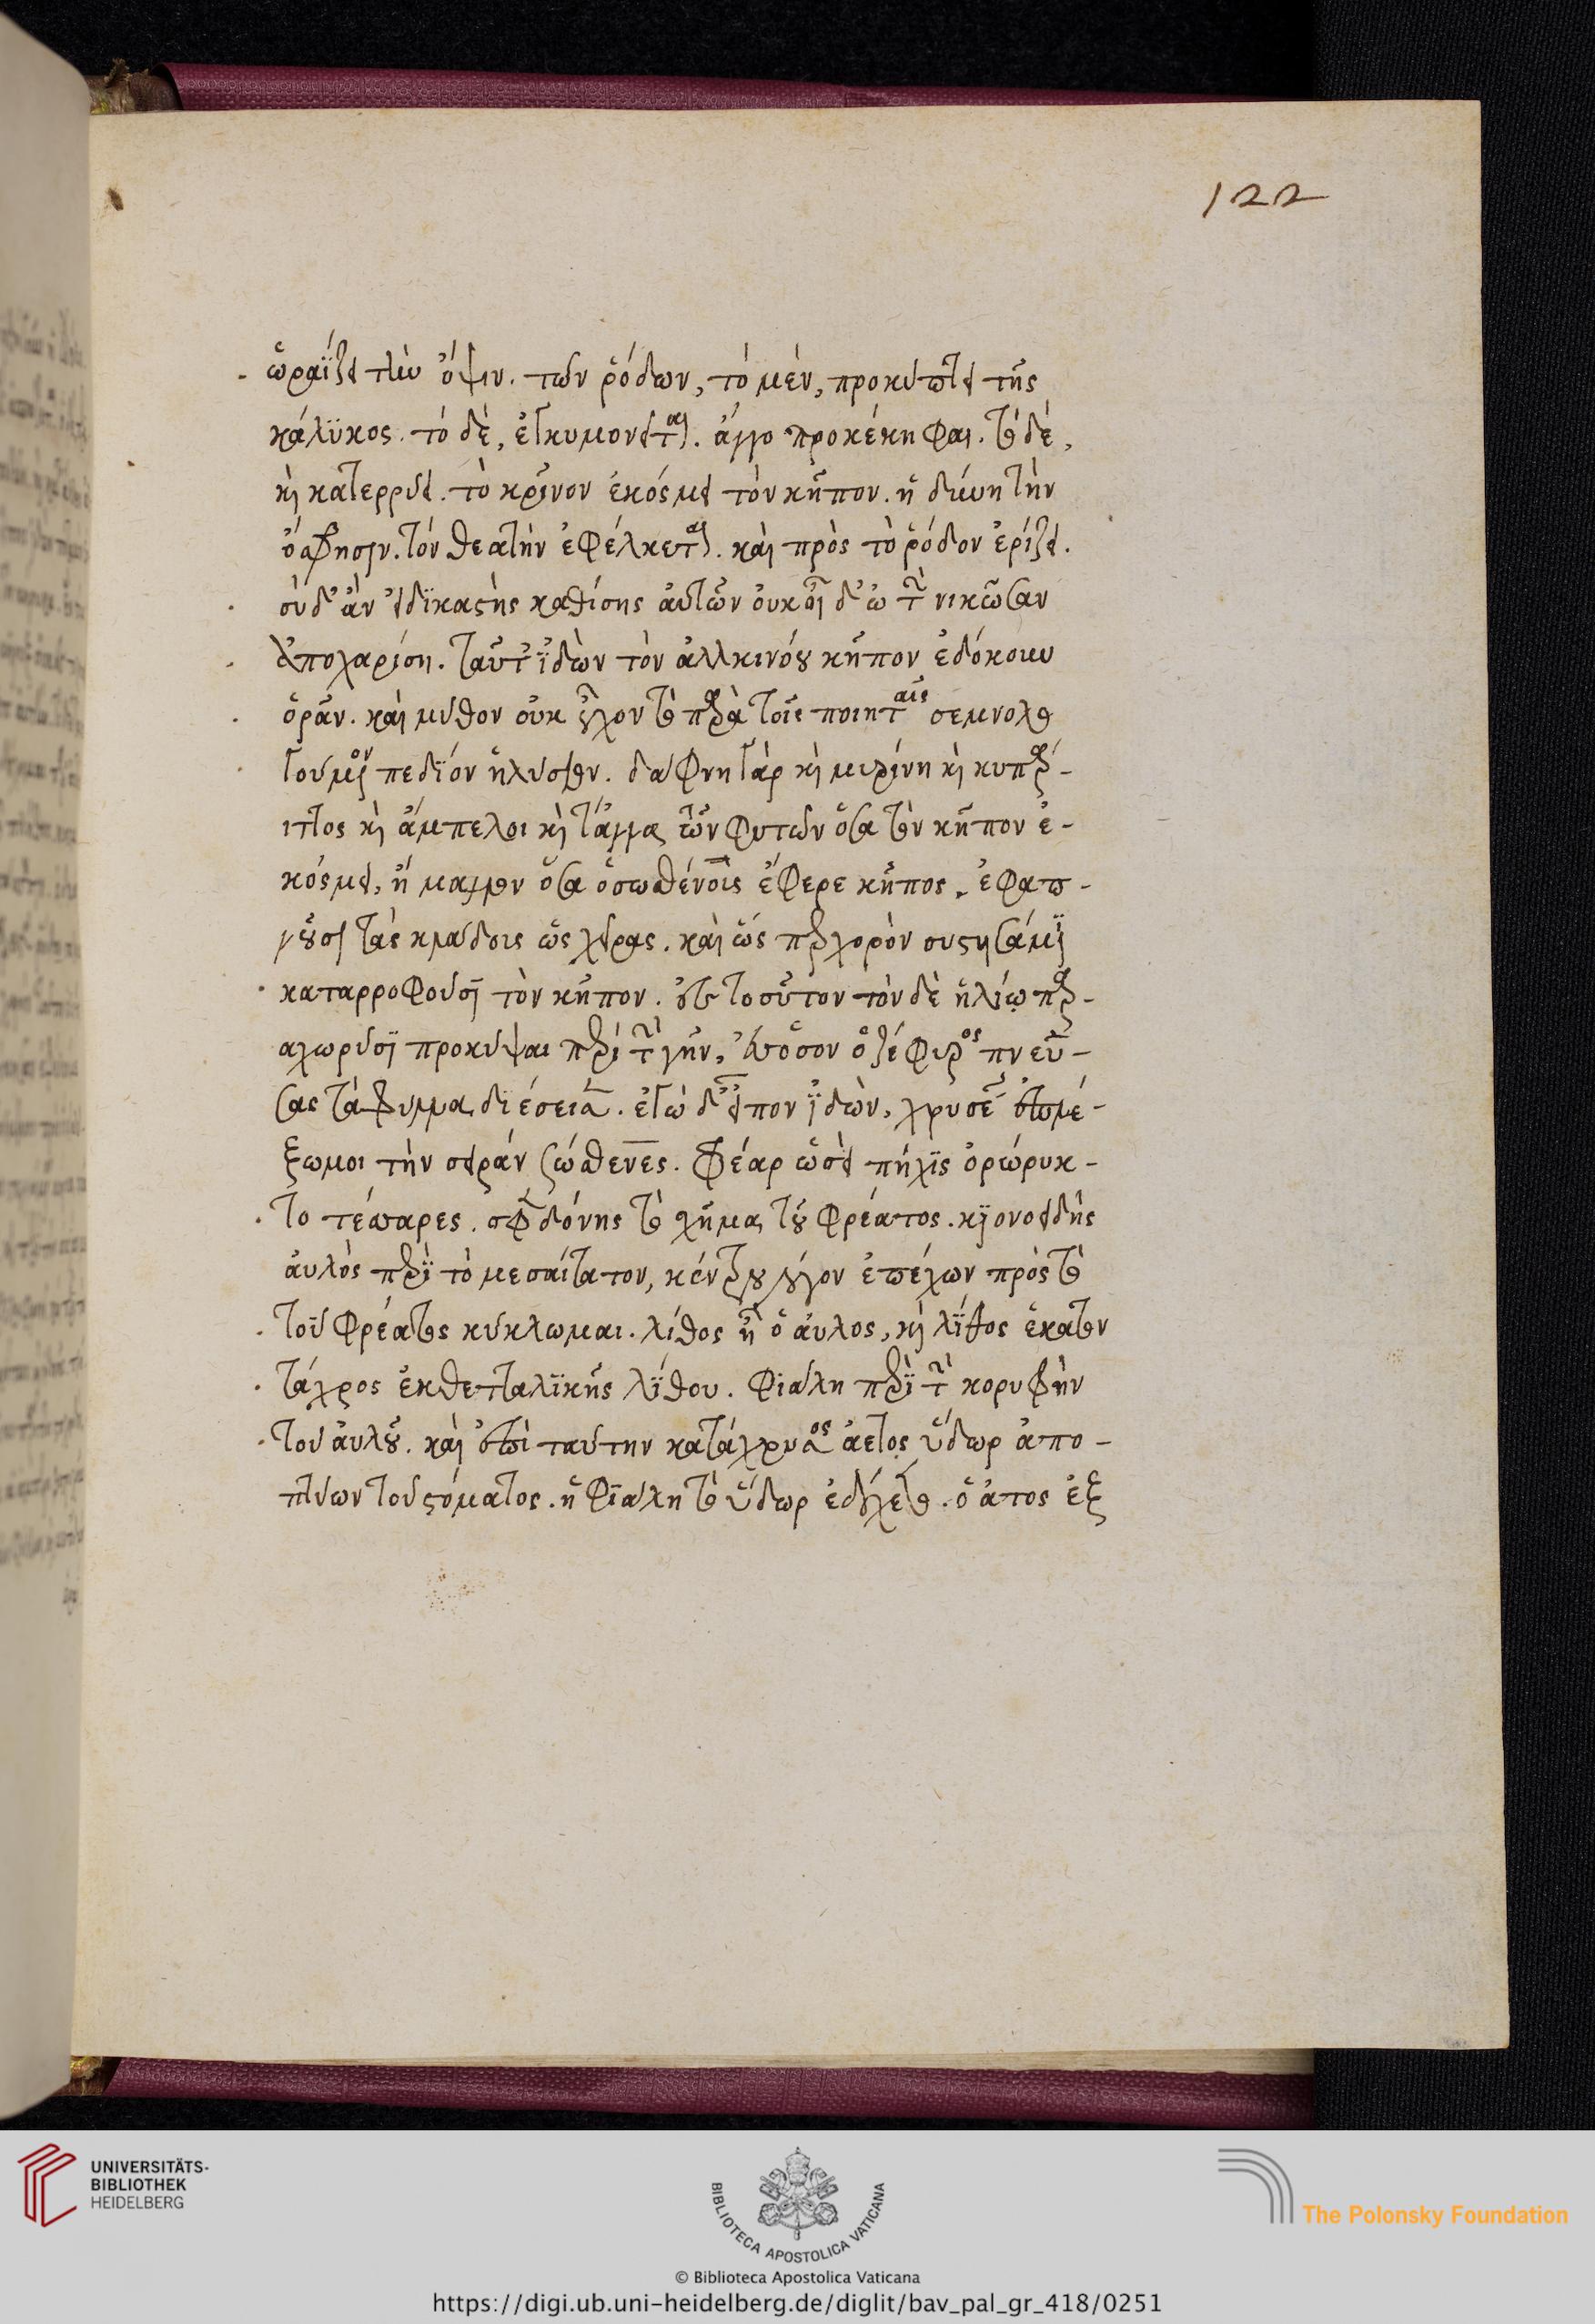 122
ὡραΐζει τὴν ὄψιν. τῶν ῥόδων, τὸ μὲν, προκύπτει τῆς
κάλϋκος. τὸ δὲ, ἐγκυμονεῖται. ἄλλο προκέκηφαι. τὸ δὲ,
καὶ κατερρύει. τὸ κρίνον ἐκόσμει τὸν κῆπον. ἡ δίμνη τὴν
τὸν θεατὴν ἐφέλκεται. καὶ πρὸς τὸ ῥόδον ἐρίζει.
σὺ δ' ἂν εἰ δϊκαστὴς καθίσης αὐτῶν οὐκ οἶ δ' ὦ τὴν νικῶσαν
ἀποχαρίση. ταῦτ' ἰδὼν τὸν ἀλλκινόου κῆπον ἐδόκουν
ὁρᾶν. καὶ μύθον οὐκ εἶχον τὸ παρὰ τοῖς ποιηταῖς σεμνολο
γούμενον πεδϊόν ἠλύσιον. δάφνη γὰρ καὶ μυρίνη καὶ κυπαρί-
ιττος καὶ ἄμπελοι καὶ τἄλλα τῶν φυτῶν ὅσα τὸν κῆπον ἐ-
κόσμει, ἢ μαλλον ὅσα ὁ σωσθένους ἔφερε κῆπος. ἐφαπ-
λοῦσι τὰς κλάδους ὡς χεῖρας. καὶ ὥς περ χορὸν συστησάμεναι
καταρροφοῦσϊ τὸν κῆπον. ἐπὶ τοσοῦτον τὸν δὲ ἡλίῳ παρ-
αχωρύσϊ προκύψαι περὶ τὴν γῆν, ἐφ' ὅσον ὁ ζέφυρος πνεύ-
σας τὰ φύλλα διέσεισε. ἐγὼ δ' εἶπον ἰδὼν, χρυσὲ ἐπιμέ-
ξωμοι τὴν σειρὰν σώσθενες. φρέαρ ὡσεὶ πήχϊς ὀρώρυκ-
το τέσσαρες. σφενδόνης τὸ σχῆμα τοῦ φρέατος. κϊονοειδὴς
ἀυλὸς περὶ τὸ μεσαίτατον, κέντρου λόγον ἐπέχων πρὸς τὸ
τοῦ φρέατος κύκλωμαι. λίθος ἦν ὁ ἀυλὸς, καὶ λίθος ἑκατὸν
τάχρος ἐκ θετταλϊκῆς λίθου. φϊάλη περὶ τὴν κορυφὴν
τοῦ ἀυλοῦ. καὶ ἐπὶ ταύτην κατάχρυσος ἀετὸς ὕδωρ ἀπο-
πτύων τοῦ στόματος. ἡ φϊάλη τὸ ὕδωρ ἐδέχετο. ὁ ἀτος ἐξ
UNIVERSITÄTS-
BIBLIOTHEK
HEIDELBERG
BIBLIOTECA APOSTOLICA VATICANA
The Polonsky Foundation
© Biblioteca Apostolica Vaticana
https://digi.ub.uni-heidelberg.de/diglit/bav_pal_gr_418/0251